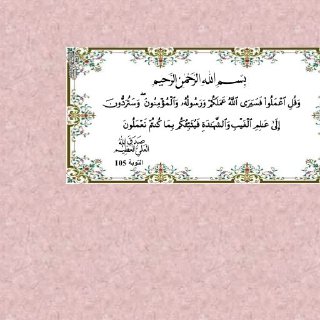 بِسْمِ اللَّهِ الرَّحْمَنِ الرَّحِيمِ
وَقُلِ اعْمَلُوا فَسَيَرَى اللَّهُ عَمَلَكُمْ وَرَسُولُهُ وَالْمُؤْمِنُونَ ۖ وَسَتُرَدُّونَ
إِلَىٰ عَالِمِ الْغَيْبِ وَالشَّهَادَةِ فَيُنَبِّئُكُم بِمَا كُنتُمْ تَعْمَلُونَ
صدق الله
العلي العظيم
التوبة 105